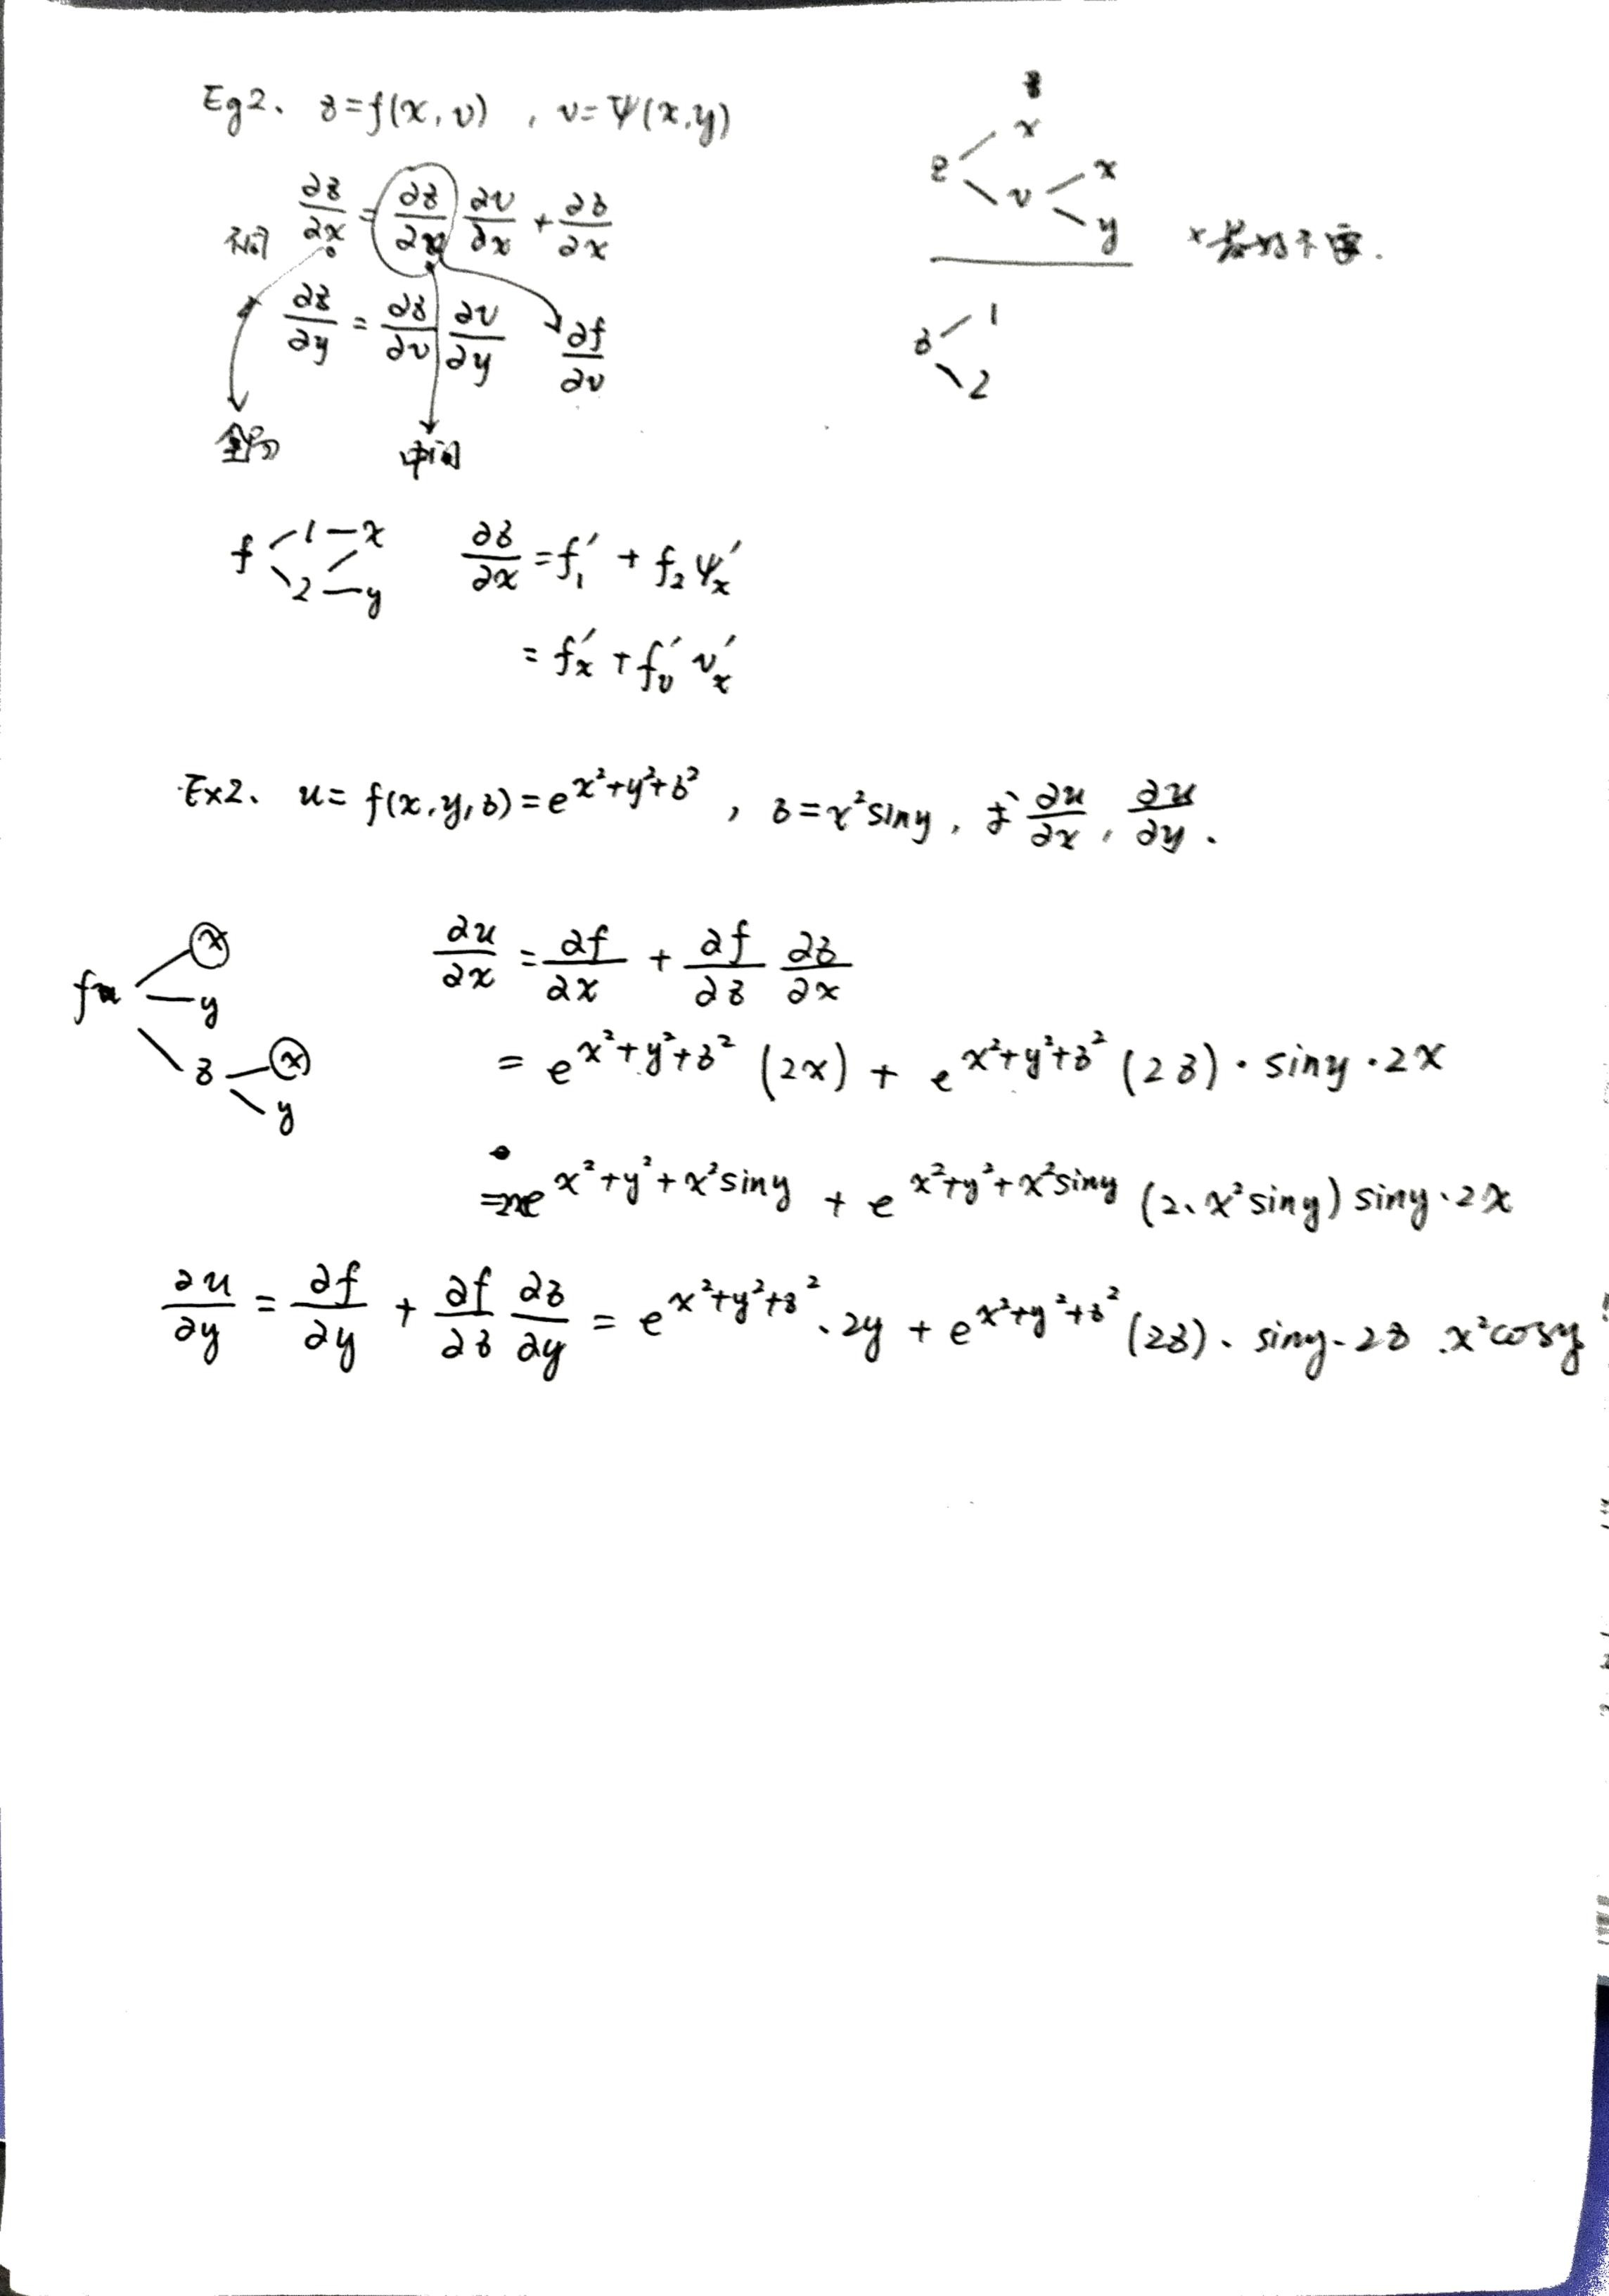 Eg2、 z=f(x,v) , v=Ψ(x,y)
∂z/∂x = ∂z/∂v ∂v/∂x + ∂z/∂x
不同
∂z/∂y = ∂z/∂v ∂v/∂y
∂f/∂v
中间
z x
v x
y
z 1
2
f 1—x
2—y
∂z/∂x = f₁′ + f₂ψₓ′
= fₓ′ + fᵥ′ vₓ′
Ex2、 u= f(x,y,z)=e^{x²+y²+z²} , z=x²siny, 求 ∂u/∂x , ∂u/∂y .
fu x
y
z x
y
∂u/∂x = ∂f/∂x + ∂f/∂z ∂z/∂x
= e^{x²+y²+z²} (2x) + e^{x²+y²+z²} (2z)·siny·2x
=2xe^{x²+y²+x²siny} + e^{x²+y²+x²siny} (2、x²siny) siny·2x
∂u/∂y = ∂f/∂y + ∂f/∂z ∂z/∂y = e^{x²+y²+z²}·2y + e^{x²+y²+z²} (2z)· siny·2z ·x²cosy